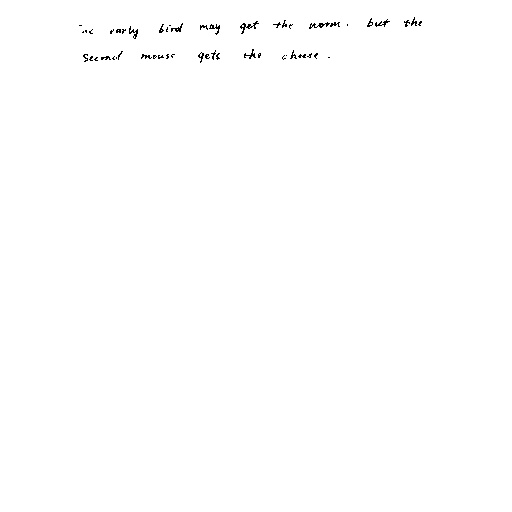 The early bird may get the worm. but the
second mouse gets the cheese.